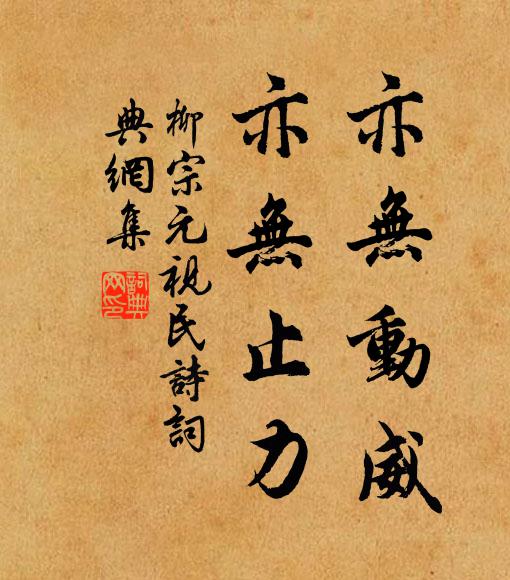 亦無動威
亦無止力
柳宗元視民詩詞
典網集
詞典網印